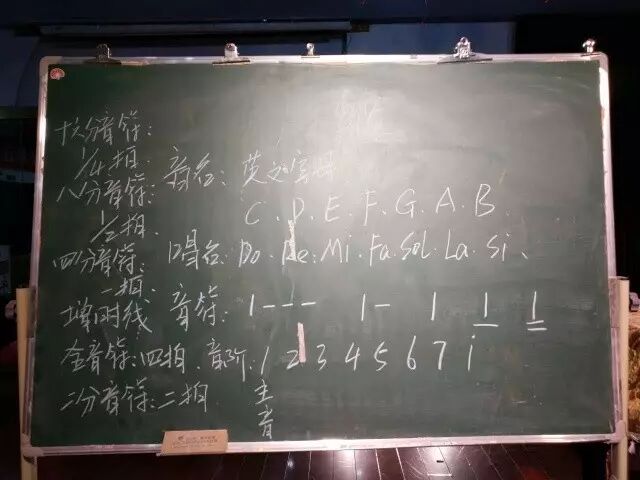 十六分音符:
1/4拍.
八分音符:
1/2拍.
四分音符:
一拍.
增时线
全音符:四拍.
二分音符:二拍.
音名:英文字母
C.D.E.F.G.A.B.
唱名:Do.Re.Mi.Fa.Sol.La.Si、
音符: 1--- 1- 1 1 1
音阶:1 2 3 4 5 6 7 i
主
音